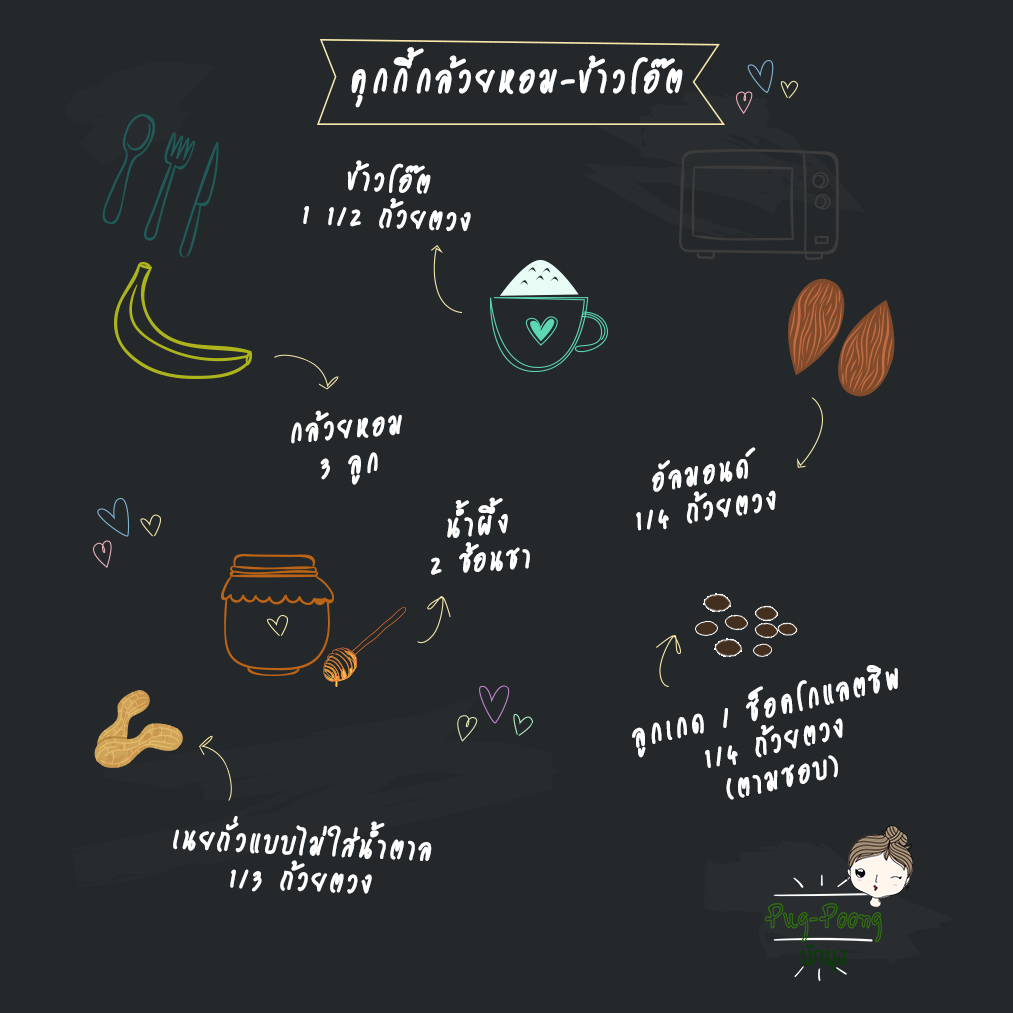 คุกกี้กล้วยหอม-ข้าวโอ๊ต
ข้าวโอ๊ต
1 1/2 ถ้วยตวง
กล้วยหอม
3 ลูก
อัลมอนด์
1/4 ถ้วยตวง
น้ำผึ้ง
2 ช้อนชา
ลูกเกด / ช็อคโกแลตชิพ
1/4 ถ้วยตวง
(ตามชอบ)
เนยถั่วแบบไม่ใส่น้ำตาล
1/3 ถ้วยตวง
Pug-Poong